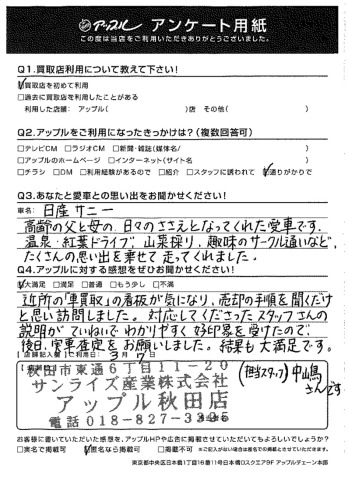 アップル アンケート用紙
この度は当店をご利用いただきありがとうございました。
Q1.買取店利用について教えて下さい!
☑買取店を初めて利用
□過去に買取店を利用したことがある
利用した店舗: アップル( )店 その他( )
Q2.アップルをご利用になったきっかけは?(複数回答可)
□テレビCM □ラジオCM □新聞・雑誌(媒体名/ )
□アップルのホームページ □インターネット(サイト名 )
□チラシ □DM □利用経験があるので □紹介 □スタッフに誘われて ☑通りがかりで
Q3.あなたと愛車との思い出をお聞かせください!
車名: 日産サニー
高齢の父と母の、日々のささえとなってくれた愛車です。
温泉・紅葉ドライブ、山菜採り、趣味のサークル通いなど、
たくさんの思い出を乗せて走ってくれました。
Q4.アップルに対する感想をぜひお聞かせください!
☑大満足 □満足 □普通 □もう少し □不満
近所の「車買取」の看板が気になり、売却の手順を聞くだけ
と思い訪問しました。対応してくださったスタッフさんの
説明がていねいでわかりやすく好印象を受けたので、
後日、実車査定をお願いしました。結果も大満足です。
【店舗記入欄】ご利用日: 3月7日
秋田市東通6丁目11-20
サンライズ産業株式会社
アップル秋田店
電話 018-827-3395
(担当スタッフ)中嶋さんです
お客様に書いていただいた感想を、アップルHPや広告に掲載させていただいてもよろしいでしょうか?
□実名で掲載可 ☑匿名なら掲載可 □掲載不可
東京都中央区日本橋1丁目16番11号日本橋Dスクエア9F アップルチェーン本部